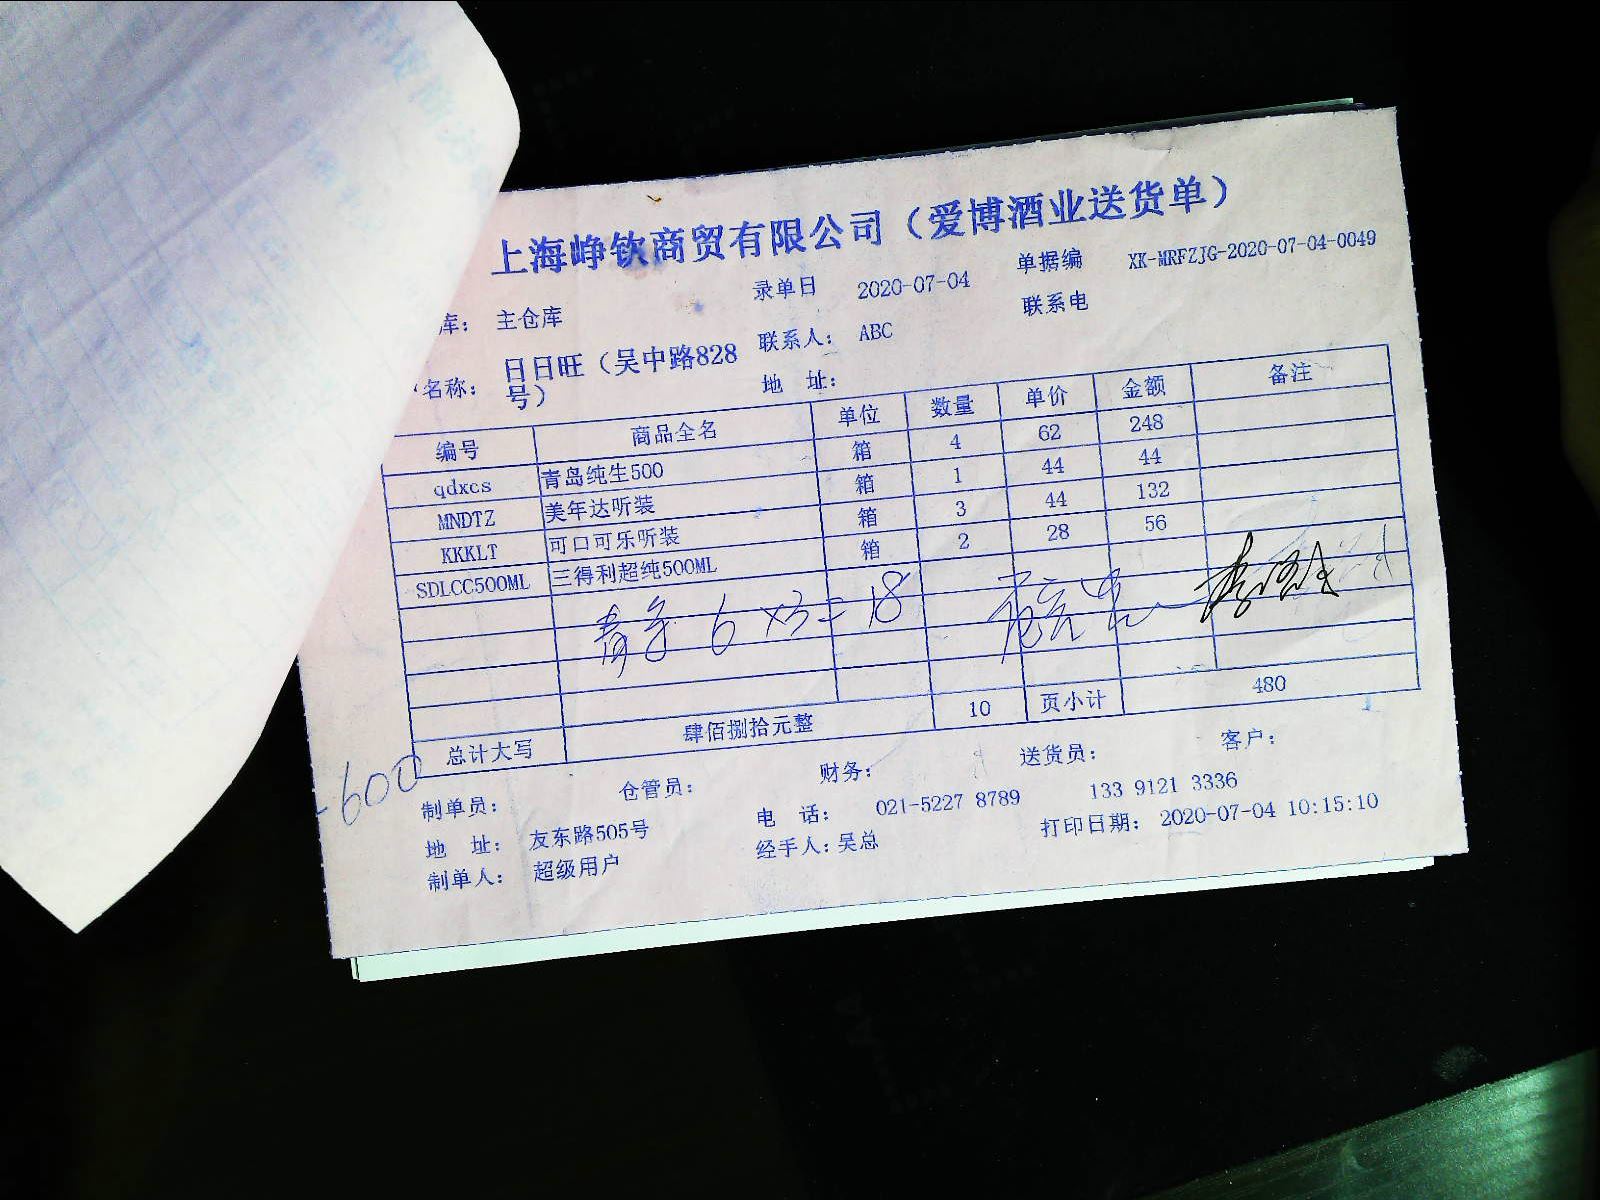 上海峥钦商贸有限公司（爱博酒业送货单）
库： 主仓库 录单日 2020-07-04 单据编 XK-MRFZJG-2020-07-04-0049
名称： 日日旺（吴中路828号） 联系人： ABC 联系电
地 址：
编号 商品全名 单位 数量 单价 金额 备注
qdxcs 青岛纯生500 箱 4 62 248
MNDTZ 美年达听装 箱 1 44 44
KKKLT 可口可乐听装 箱 3 44 132
SDLCC500ML 三得利超纯500ML 箱 2 28 56
青岛 6×3=18
总计大写 肆佰捌拾元整 10 页小计 480
-600
制单员： 仓管员： 财务： 送货员： 客户：
地 址： 友东路505号 电 话： 021-5227 8789 133 9121 3336
制单人： 超级用户 经手人：吴总 打印日期： 2020-07-04 10:15:10